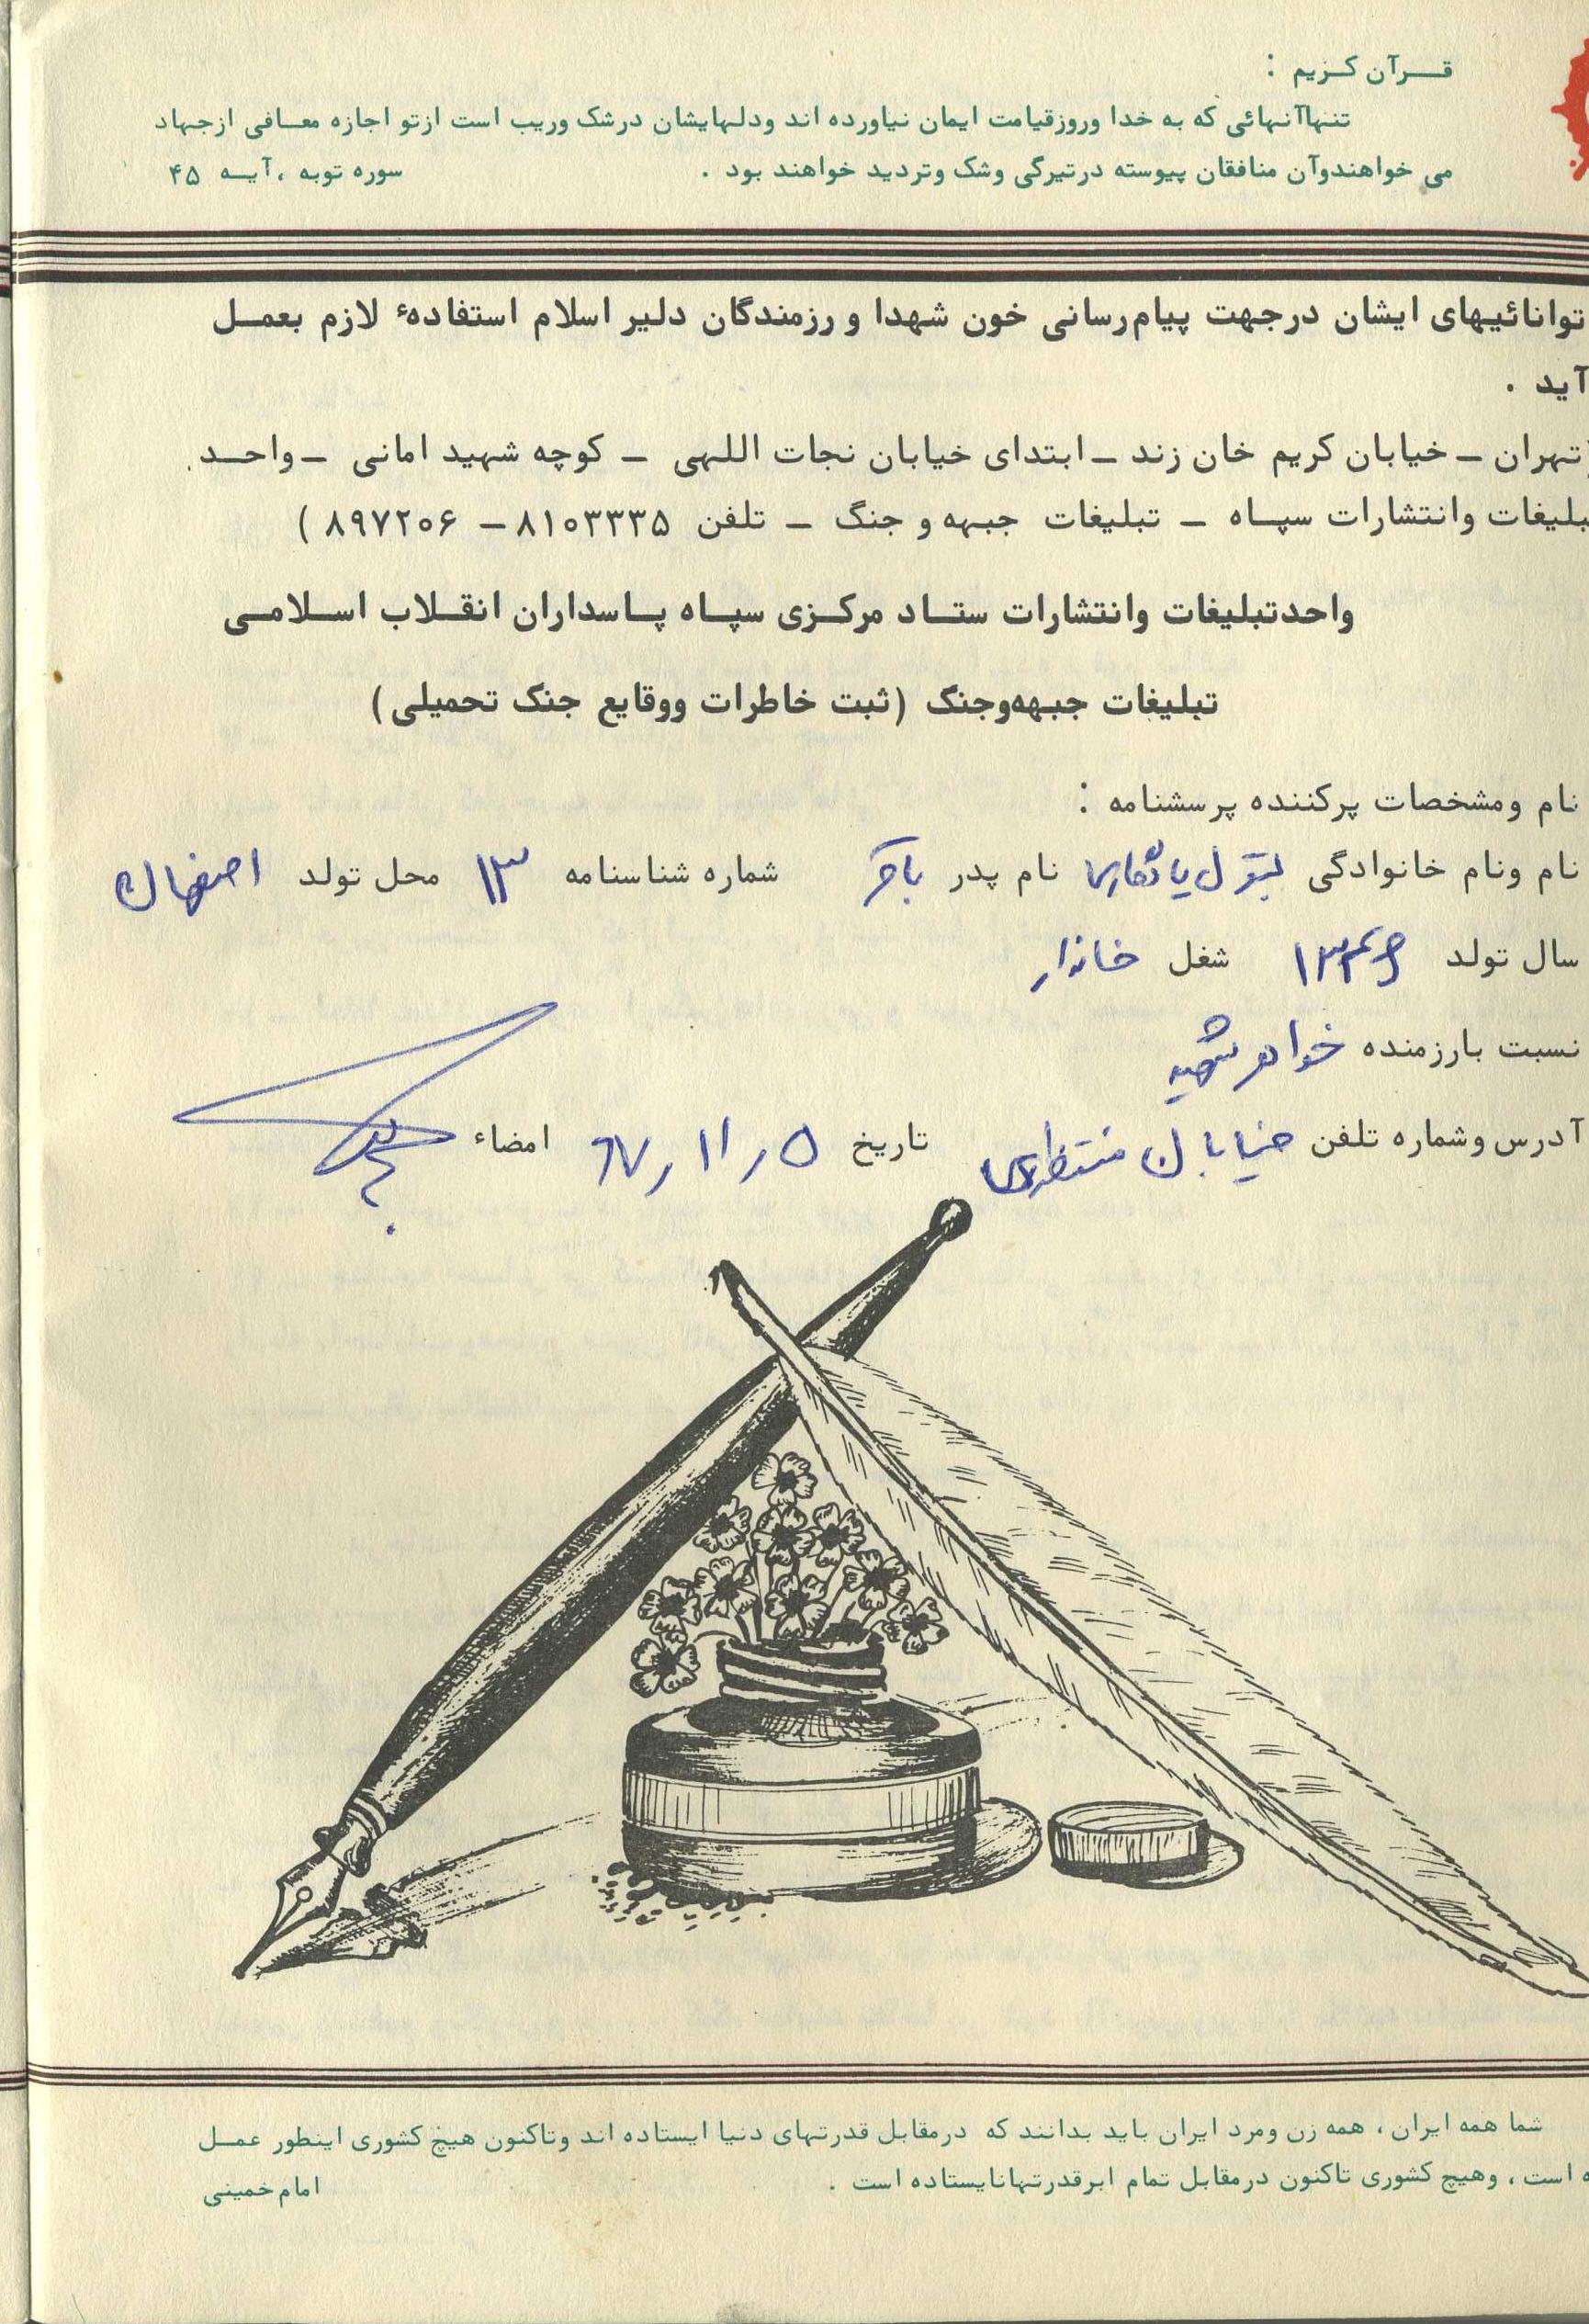 قـــرآن کـــزیم :
تنهاآنهائی که به خدا وروزقیامت ایمان نیاورده اند ودلهایشان درشک وریب است ازتو اجازه معـــافی ازجهاد
می خواهندوآن منافقان پیوسته درتیرگی وشک وتردید خواهند بود . سوره توبه ، آیـــه ۴۵
توانائیهای ایشان درجهت پیام‌رسانی خون شهدا و رزمندگان دلیر اسلام استفادهٔ لازم بعمـــل
آید .
تهران – خیابان کریم خان زند – ابتدای خیابان نجات اللهی – کوچه شهید امانی – واحـــد
بلیغات وانتشارات سپـــاه – تبلیغات جبهه و جنگ – تلفن ۸۱۰۳۳۳۵ – ۸۹۷۲۰۶ )
واحدتبلیغات وانتشارات ستـــاد مرکـــزی سپـــاه پـــاسداران انقـــلاب اســـلامـــی
تبلیغات جبهه‌وجنگ (ثبت خاطرات ووقایع جنگ تحمیلی)
نام ومشخصات پرکننده پرسشنامه :
نام ونام خانوادگی بتول نام پدر باقر شماره شناسنامه ۱۳ محل تولد اصفهان
سال تولد شغل خانه‌دار
نسبت بارزمنده خواهر شهید
آدرس وشماره تلفن خیابان منتظری تاریخ ۵ ر ۱۱ ر ۶۷ امضاء
شما همه ایران ، همه زن ومرد ایران باید بدانند که درمقابل قدرتهای دنیا ایستاده اند وتاکنون هیچ کشوری اینطور عمـــل
ه است ، وهیچ کشوری تاکنون درمقابل تمام ابرقدرتهانایستاده است . امام‌خمینی